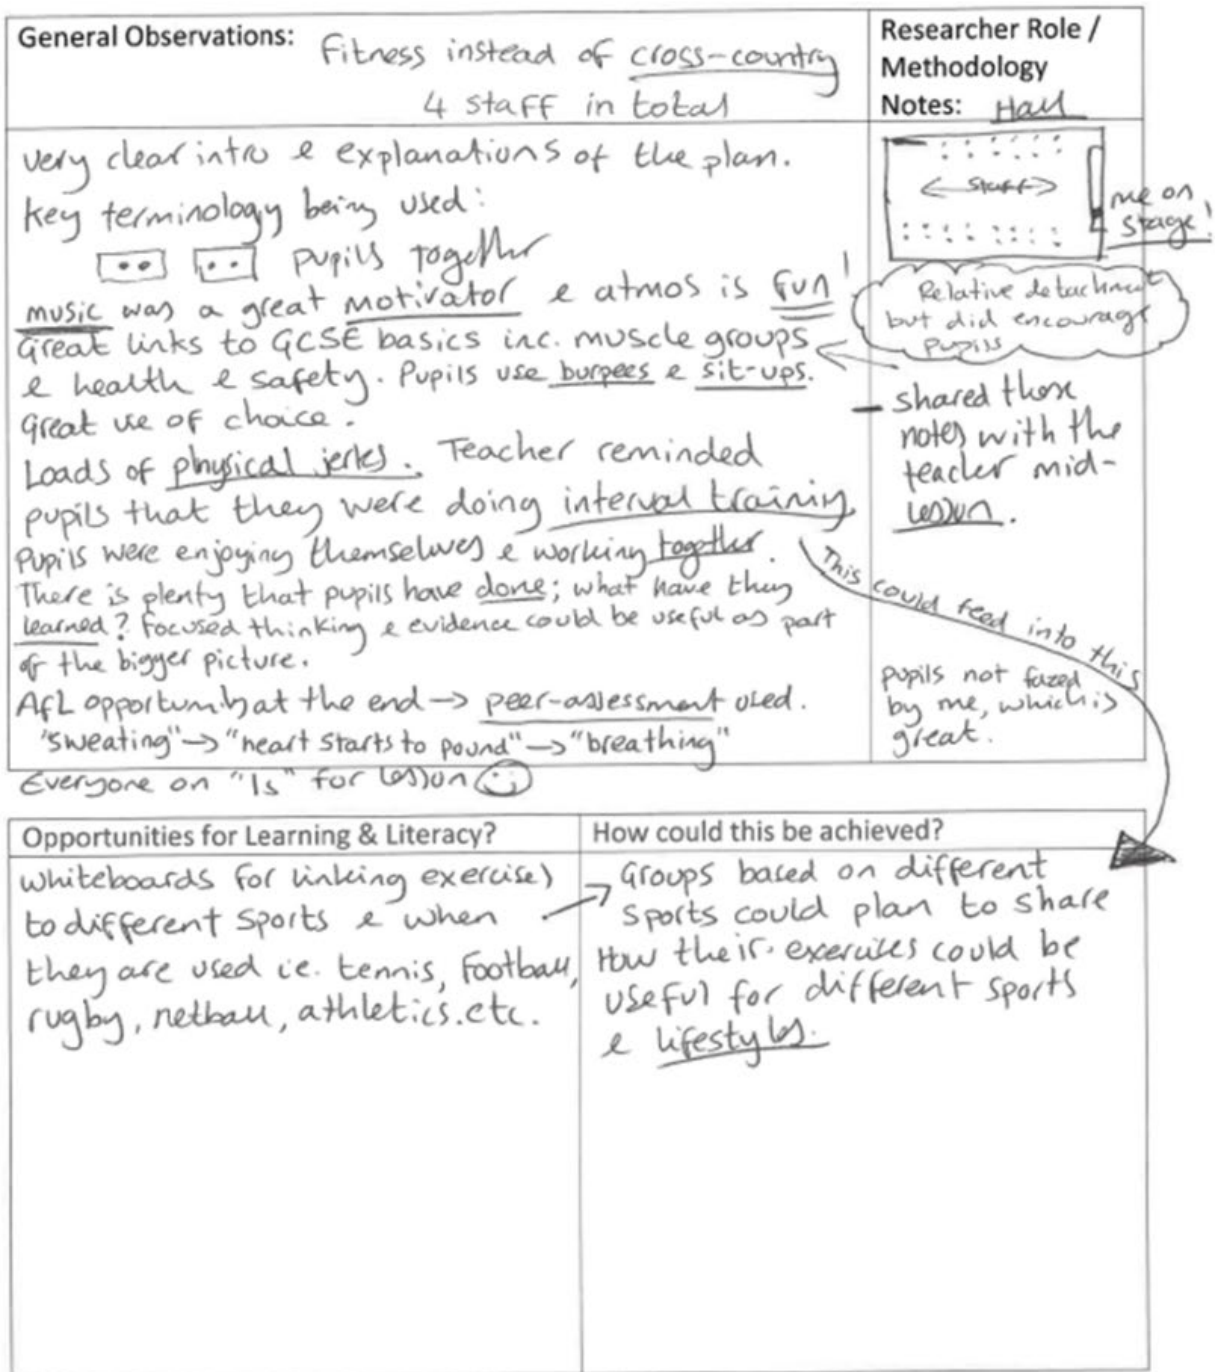 General Observations: Fitness instead of cross-country
4 staff in total
very clear intro & explanations of the plan.
Key terminology being used:
pupils together
music was a great motivator & atmos is fun!
Great links to GCSE basics inc. muscle groups
& health & safety. Pupils use burpees & sit-ups.
Great use of choice.
Loads of physical jerks. Teacher reminded
pupils that they were doing interval training.
Pupils were enjoying themselves & working together.
There is plenty that pupils have done; what have they
learned? Focused thinking & evidence could be useful as part
of the bigger picture.
AfL opportunity at the end → peer-assessment used.
"sweating" → "heart starts to pound" → "breathing"
Everyone on "1s" for lesson
Researcher Role /
Methodology
Notes: Hall
← Staff →
me on
stage!
Relative detachment
but did encourage
pupils
- shared these
notes with the
teacher mid-
lesson.
This could feed into this
pupils not fazed
by me, which is
great.
Opportunities for Learning & Literacy?
whiteboards for linking exercises
to different sports & when
they are used i.e. tennis, football,
rugby, netball, athletics.etc.
How could this be achieved?
Groups based on different
sports could plan to share
How their exercises could be
useful for different sports
& lifestyles.